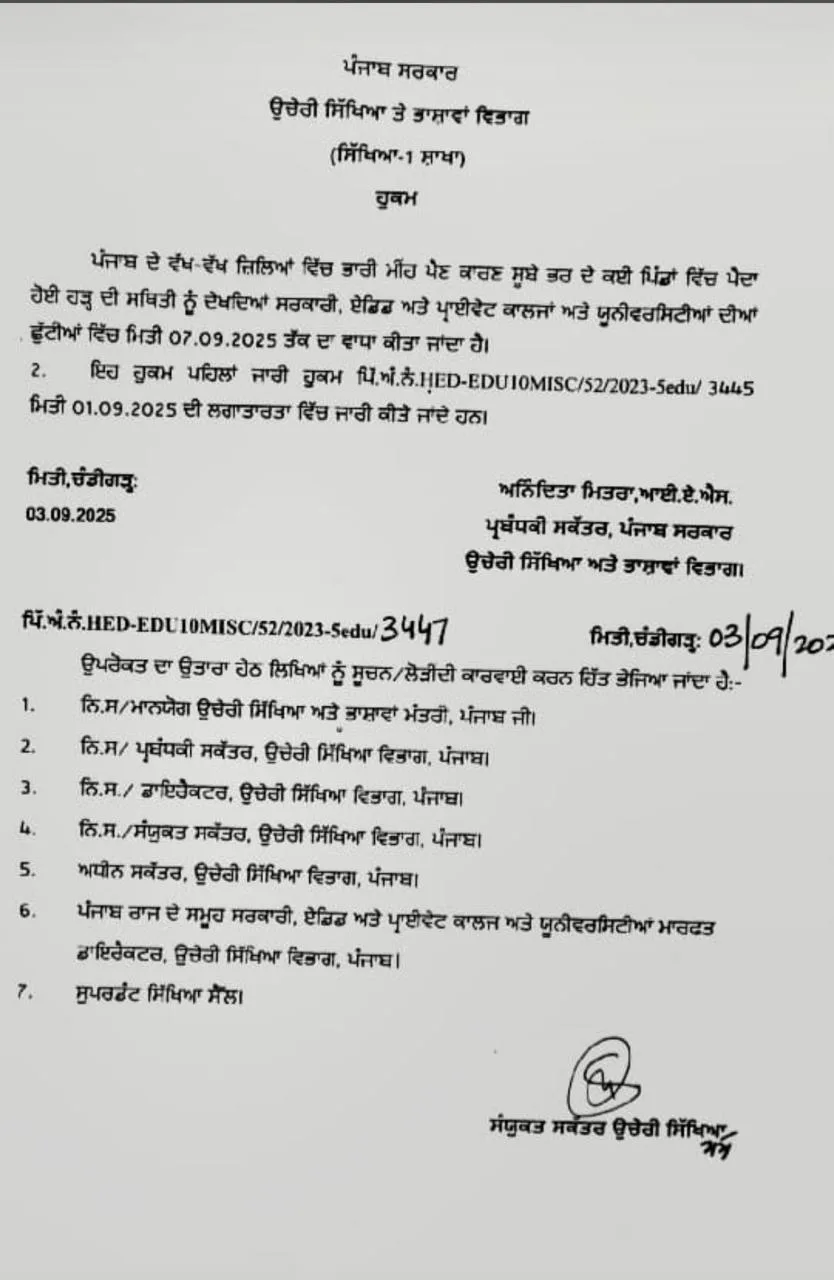 ਪੰਜਾਬ ਸਰਕਾਰ
ਉਚੇਰੀ ਸਿੱਖਿਆ ਤੇ ਭਾਸ਼ਾਵਾਂ ਵਿਭਾਗ
(ਸਿੱਖਿਆ-1 ਸ਼ਾਖਾ)
ਹੁਕਮ
ਪੰਜਾਬ ਦੇ ਵੱਖ-ਵੱਖ ਜ਼ਿਲਿਆਂ ਵਿੱਚ ਭਾਰੀ ਮੀਂਹ ਪੈਣ ਕਾਰਣ ਸੂਬੇ ਭਰ ਦੇ ਕਈ ਪਿੰਡਾਂ ਵਿੱਚ ਪੈਦਾ
ਹੋਈ ਹੜ੍ਹ ਦੀ ਸਥਿਤੀ ਨੂੰ ਦੇਖਦਿਆਂ ਸਰਕਾਰੀ, ਏਡਿਡ ਅਤੇ ਪ੍ਰਾਈਵੇਟ ਕਾਲਜਾਂ ਅਤੇ ਯੂਨੀਵਰਸਿਟੀਆਂ ਦੀਆਂ
ਛੁੱਟੀਆਂ ਵਿੱਚ ਮਿਤੀ 07.09.2025 ਤੱਕ ਦਾ ਵਾਧਾ ਕੀਤਾ ਜਾਂਦਾ ਹੈ।
2. ਇਹ ਹੁਕਮ ਪਹਿਲਾਂ ਜਾਰੀ ਹੁਕਮ ਪਿੱ.ਅੰ.ਨੰ.HED-EDU10MISC/52/2023-5edu/ 3445
ਮਿਤੀ 01.09.2025 ਦੀ ਲਗਾਤਾਰਤਾ ਵਿੱਚ ਜਾਰੀ ਕੀਤੇ ਜਾਂਦੇ ਹਨ।
ਮਿਤੀ,ਚੰਡੀਗੜ੍ਹ:
03.09.2025
ਅਨਿੰਦਿਤਾ ਮਿਤਰਾ,ਆਈ.ਏ.ਐਸ.
ਪ੍ਰਬੰਧਕੀ ਸਕੱਤਰ, ਪੰਜਾਬ ਸਰਕਾਰ
ਉਚੇਰੀ ਸਿੱਖਿਆ ਅਤੇ ਭਾਸ਼ਾਵਾਂ ਵਿਭਾਗ।
ਪਿੱ.ਅੰ.ਨੰ.HED-EDU10MISC/52/2023-5edu/3447 ਮਿਤੀ,ਚੰਡੀਗੜ੍ਹ: 03/09/202
ਉਪਰੋਕਤ ਦਾ ਉਤਾਰਾ ਹੇਠ ਲਿਖਿਆਂ ਨੂੰ ਸੂਚਨ/ਲੋੜੀਂਦੀ ਕਾਰਵਾਈ ਕਰਨ ਹਿੱਤ ਭੇਜਿਆ ਜਾਂਦਾ ਹੈ:-
1. ਨਿ.ਸ/ਮਾਨਯੋਗ ਉਚੇਰੀ ਸਿੱਖਿਆ ਅਤੇ ਭਾਸ਼ਾਵਾਂ ਮੰਤਰੀ, ਪੰਜਾਬ ਜੀ।
2. ਨਿ.ਸ/ ਪ੍ਰਬੰਧਕੀ ਸਕੱਤਰ, ਉਚੇਰੀ ਸਿੱਖਿਆ ਵਿਭਾਗ, ਪੰਜਾਬ।
3. ਨਿ.ਸ./ ਡਾਇਰੈਕਟਰ, ਉਚੇਰੀ ਸਿੱਖਿਆ ਵਿਭਾਗ, ਪੰਜਾਬ।
4. ਨਿ.ਸ./ਸੰਯੁਕਤ ਸਕੱਤਰ, ਉਚੇਰੀ ਸਿੱਖਿਆ ਵਿਭਾਗ, ਪੰਜਾਬ।
5. ਅਧੀਨ ਸਕੱਤਰ, ਉਚੇਰੀ ਸਿੱਖਿਆ ਵਿਭਾਗ, ਪੰਜਾਬ।
6. ਪੰਜਾਬ ਰਾਜ ਦੇ ਸਮੂਹ ਸਰਕਾਰੀ, ਏਡਿਡ ਅਤੇ ਪ੍ਰਾਈਵੇਟ ਕਾਲਜ ਅਤੇ ਯੂਨੀਵਰਸਿਟੀਆਂ ਮਾਰਫਤ
ਡਾਇਰੈਕਟਰ, ਉਚੇਰੀ ਸਿੱਖਿਆ ਵਿਭਾਗ, ਪੰਜਾਬ।
7. ਸੁਪਰਡੰਟ ਸਿੱਖਿਆ ਸੈੱਲ।
ਸੰਯੁਕਤ ਸਕੱਤਰ ਉਚੇਰੀ ਸਿੱਖਿਆ